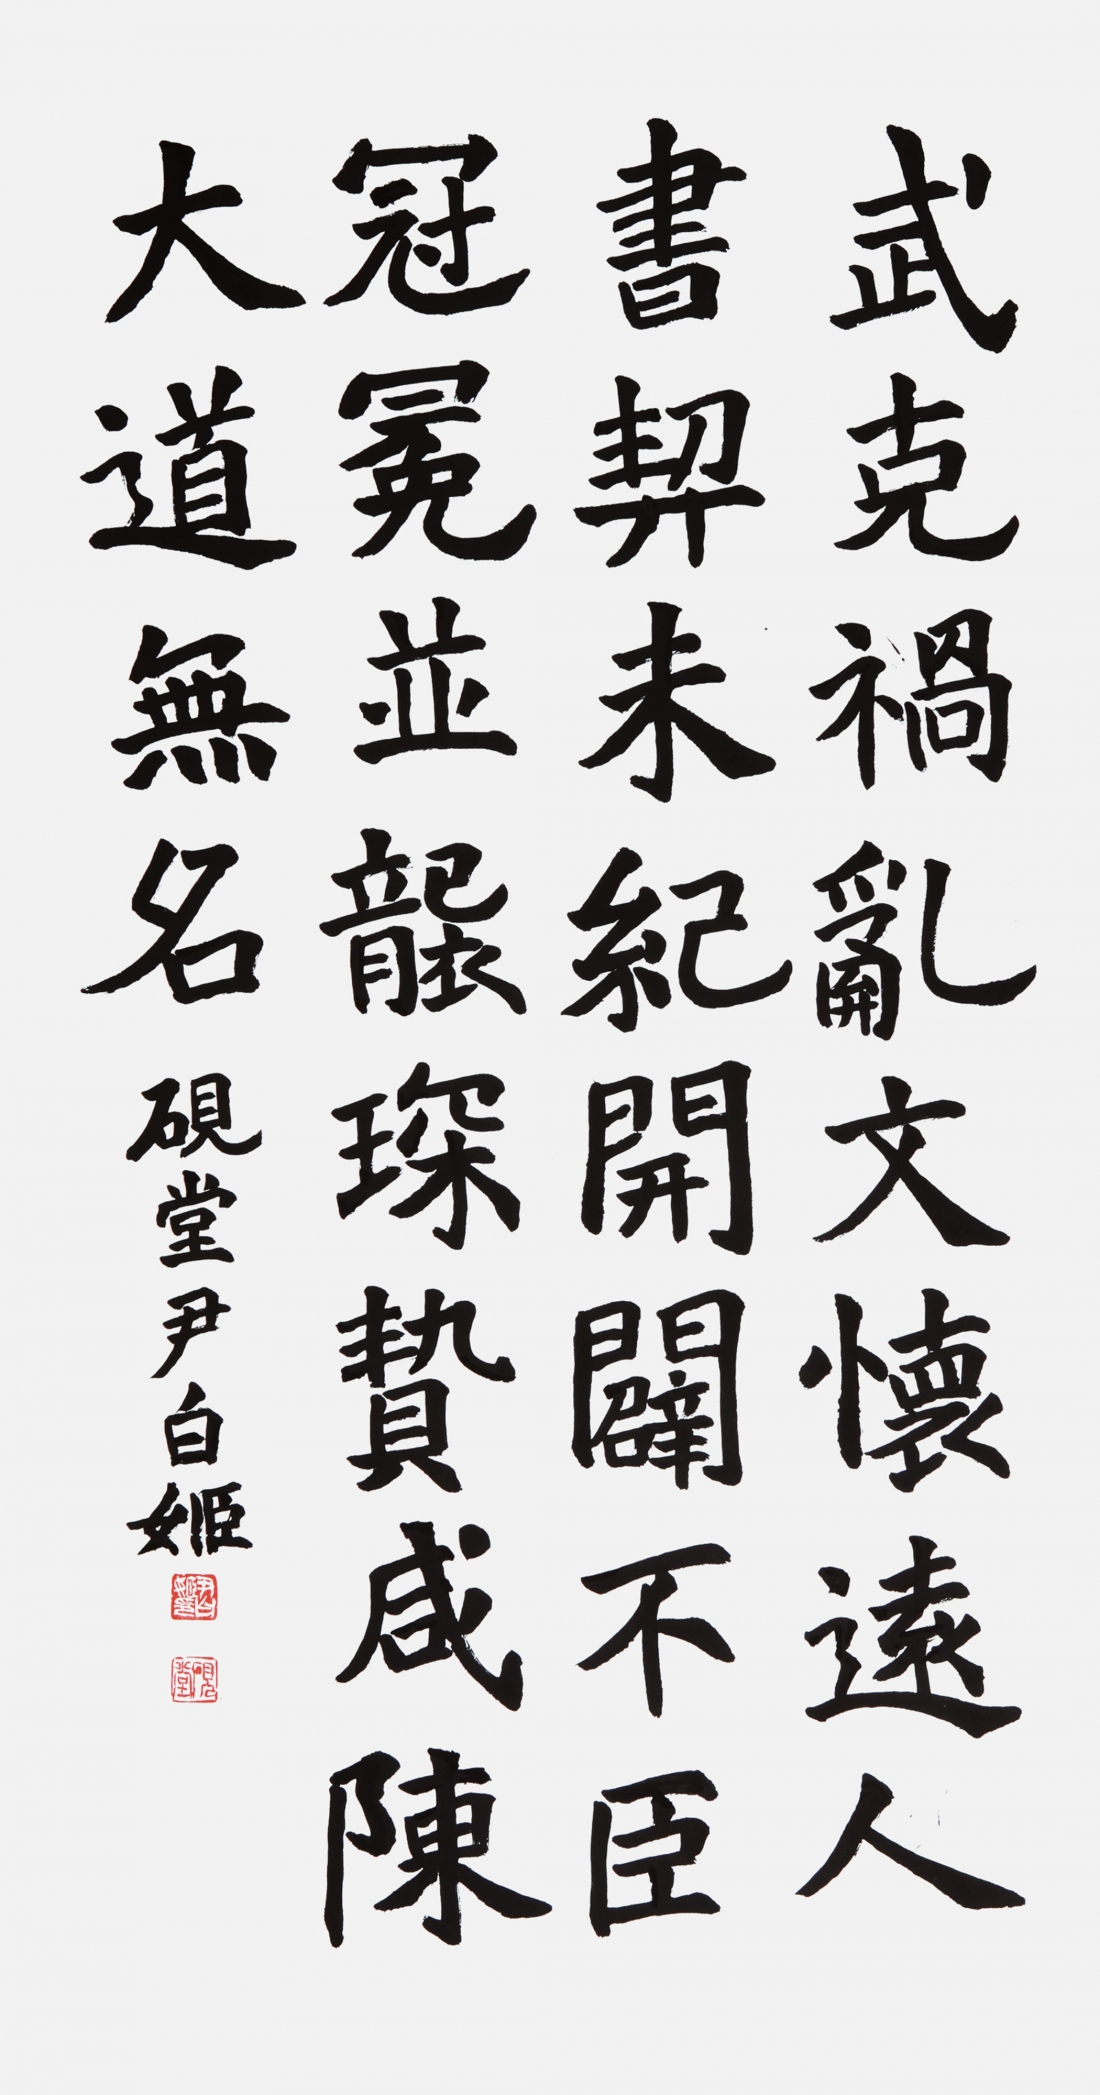 武克禍亂文懷遠人
書契未紀開闢不臣
冠冕並襲琛贄咸陳
大道無名 硯堂尹白姬
硯堂